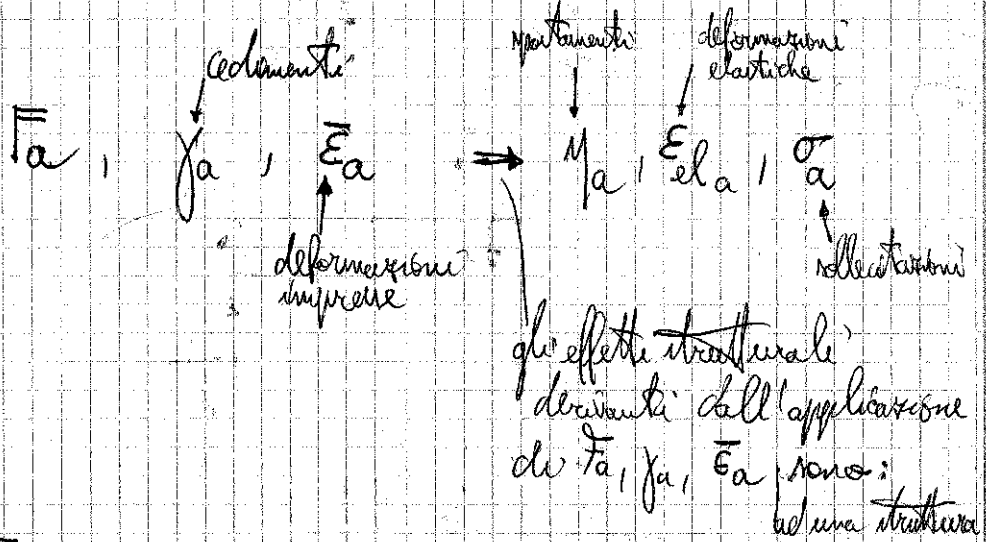 cedimenti
spostamenti
deformazioni
elastiche
F̄a , γa , ε̄a ⇒ ηa , εel a , σa
deformazioni
impresse
sollecitazioni
gli effetti strutturali
derivanti dall'applicazione
di F̄a, γa, ε̄a sono:
ad una struttura